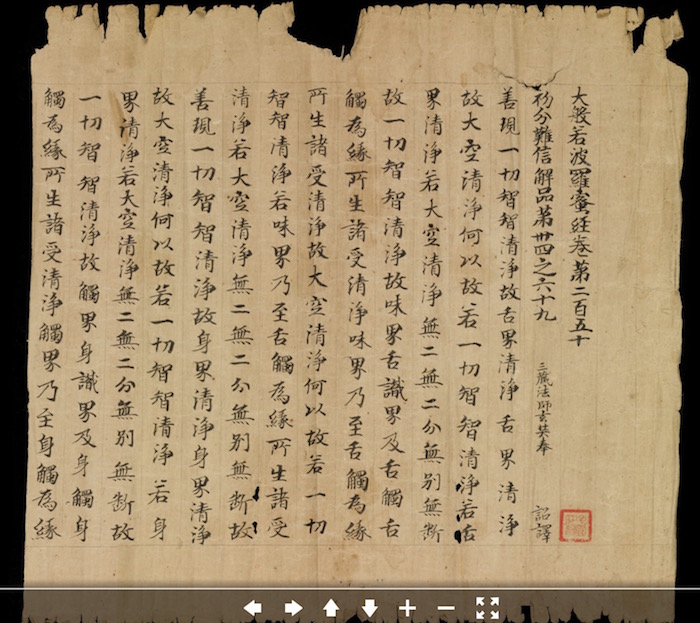 大般若波羅蜜經卷第二百五十
初分難信解品第卅四之六十九 三藏法師玄奘奉 詔譯
善現一切智智清淨故舌界清淨舌界清淨
故大空清淨何以故若一切智智清淨若舌
界清淨若大空清淨無二無二分無別無断
故一切智智清淨故味界舌識界及舌觸舌
觸為緣所生諸受清淨味界乃至舌觸為緣
所生諸受清淨故大空清淨何以故若一切
智智清淨若味界乃至舌觸為緣所生諸受
清淨若大空清淨無二無二分無別無断故
善現一切智智清淨故身界清淨身界清淨
故大空清淨何以故若一切智智清淨若身
界清淨若大空清淨無二無二分無別無断故
一切智智清淨故觸界身識界及身觸身
觸為緣所生諸受清淨觸界乃至身觸為緣